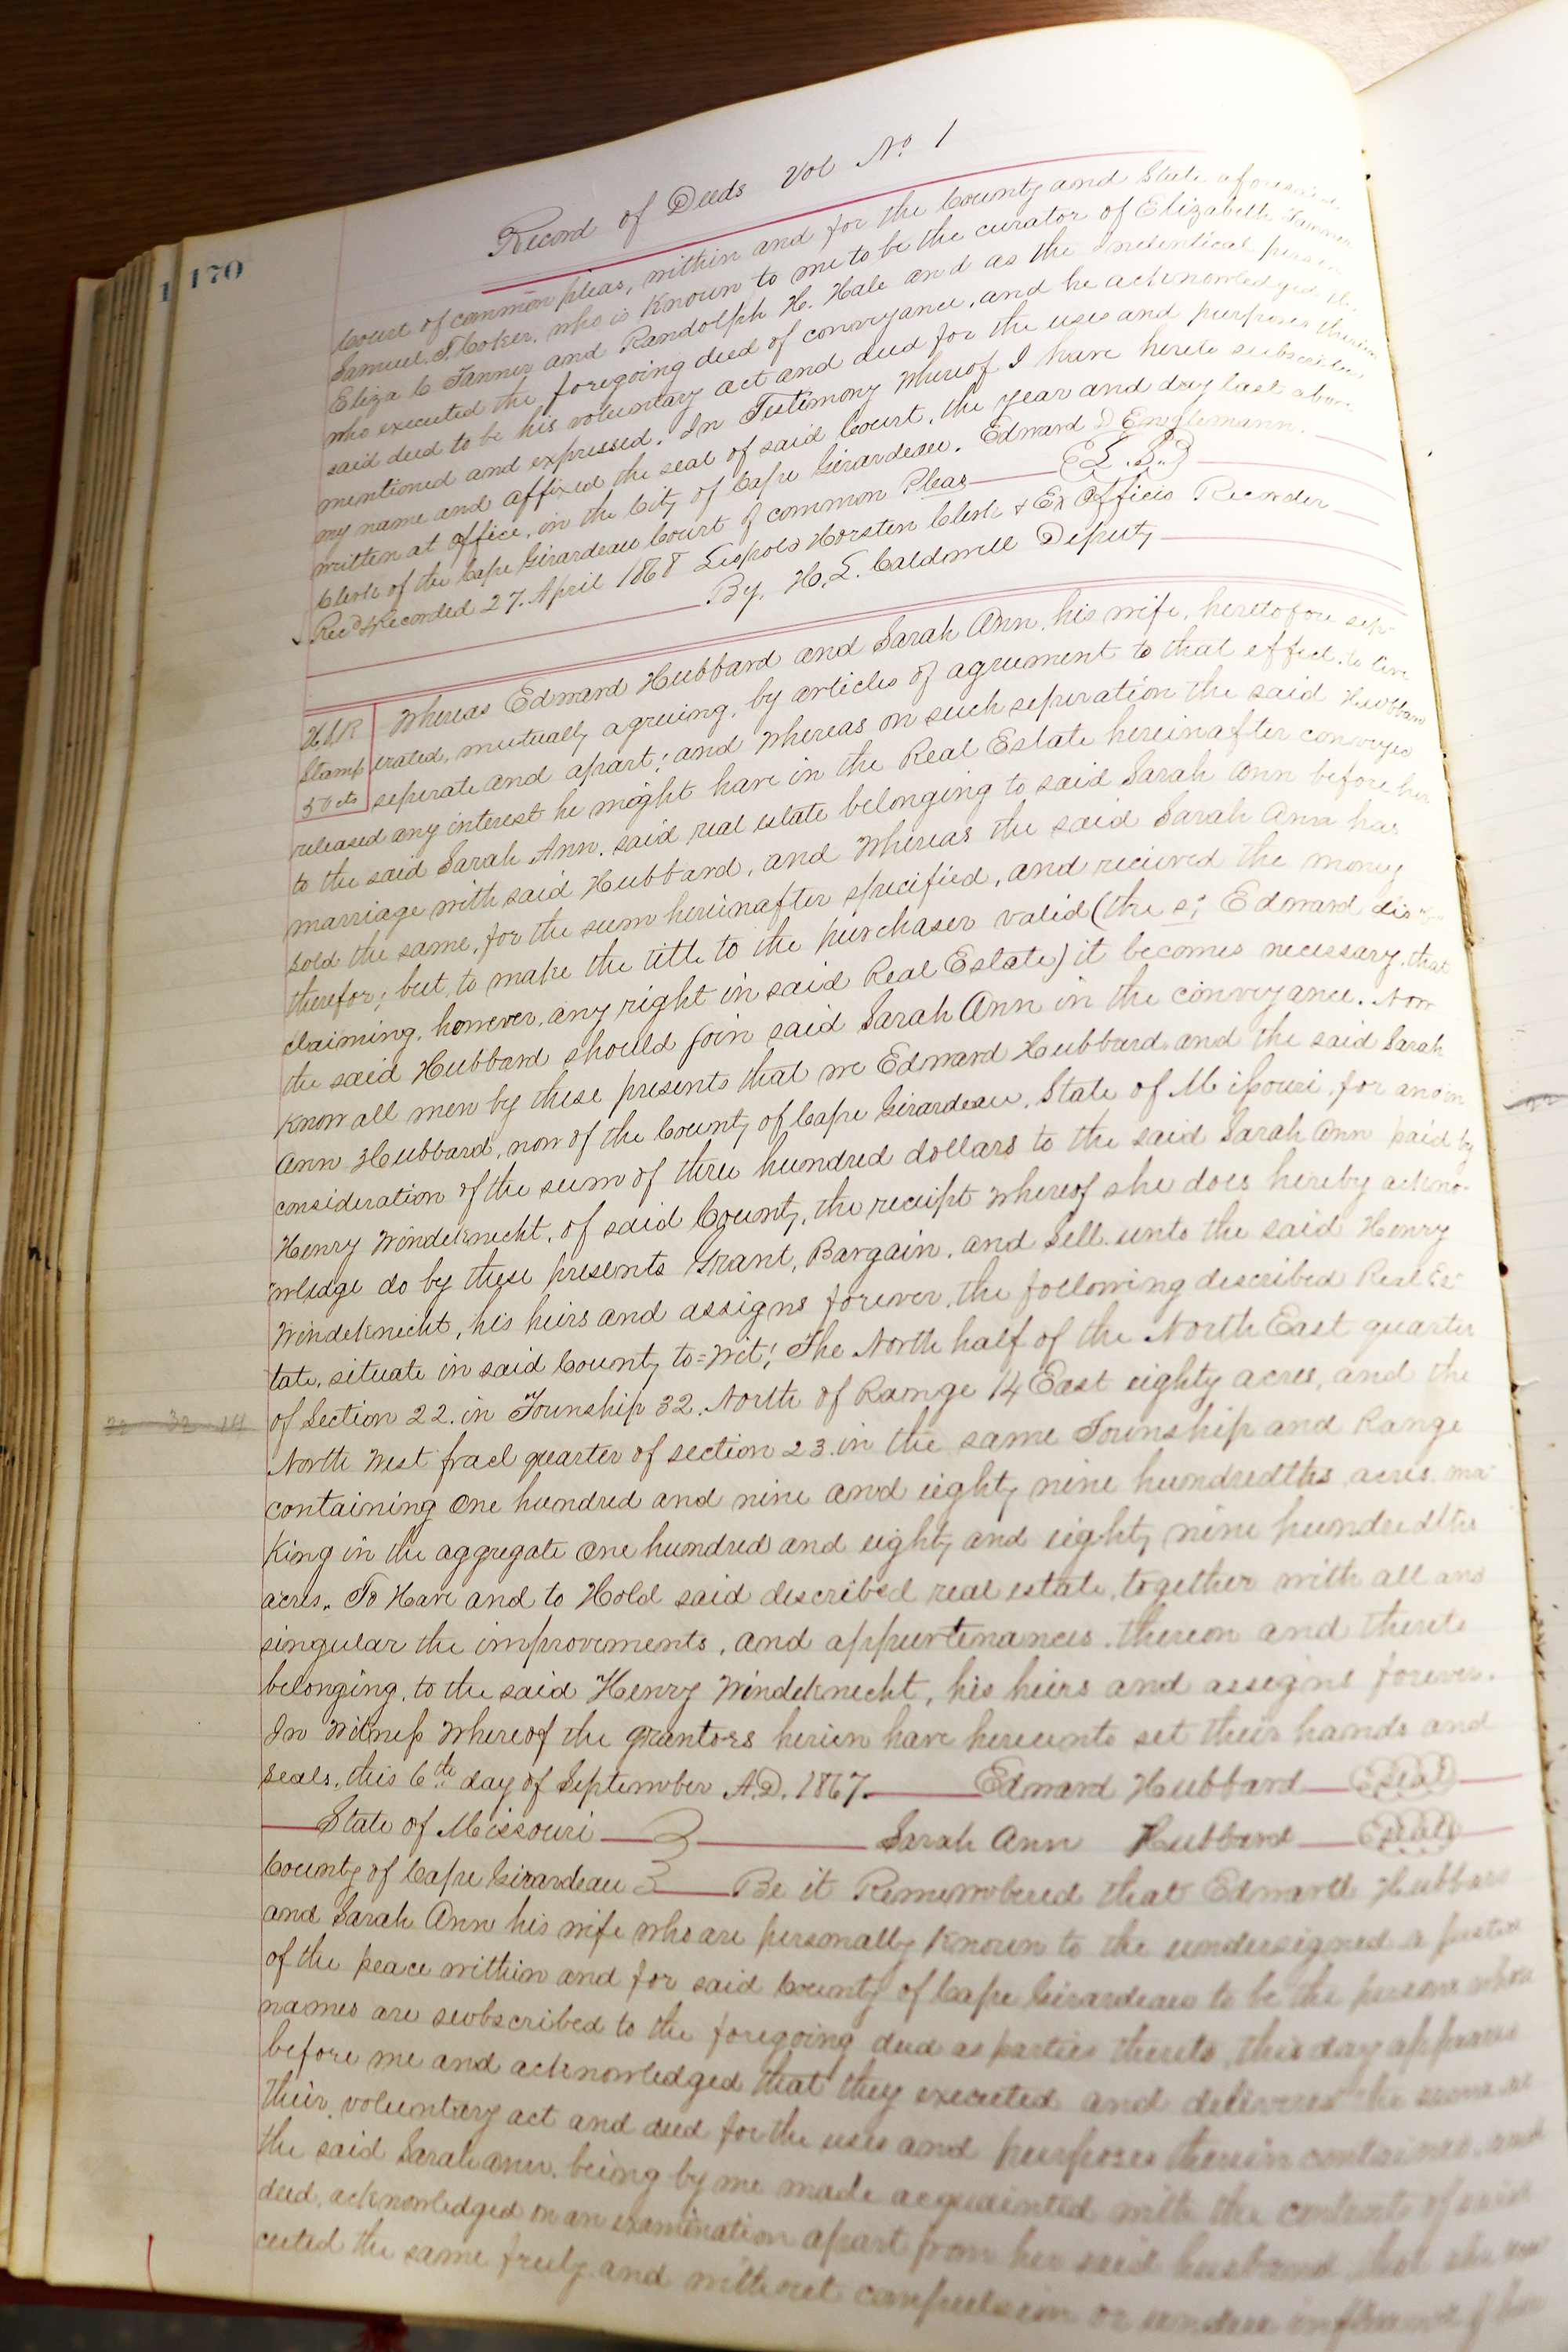 170
Record of Deeds Vol No. 1
Court of common pleas, within and for the County and State aforesaid
Samuel T Coker, who is Known to me to be the curator of Elizabeth Tanner
Eliza C Tanner and Randolph H. Hale and as the Indentical person
who executed the foregoing deed of conveyance, and he acknowledged the
said deed to be his voluntary act and deed for the uses and purposes therein
mentioned and expressed. In Testimony Whereof I have hereto subscribed
my name and affixed the seal of said Court, the year and day last above
written at office, in the City of Cape Girardeau. Edward D Englemann.
Clerk of the Cape Girardeau Court of common Pleas {L.S.}
Rec'd & Recorded 27. April 1868 Leopold Horsten Clerk & Ex Officio Recorder
By. H. L. Caldwell Deputy
Whereas Edward Hubbard and Sarah Ann, his wife, heretofore sep-
Stamp erated, mutually agreeing, by articles of agreement to that effect, to live
50 cts seperate and apart; and Whereas on such seperation the said Hubbard
released any interest he might have in the Real Estate hereinafter conveyed
to the said Sarah Ann, said real estate belonging to said Sarah Ann before her
marriage with said Hubbard, and Whereas the said Sarah Ann has
sold the same, for the sum hereinafter specified, and recieved the money
therefor; but, to make the title to the purchaser valid (the sd Edward dis
claiming, however, any right in said Real Estate) it becomes necessary that
the said Hubbard should join said Sarah Ann in the conveyance. Now
Know all men by these presents that we Edward Hubbard and the said Sarah
Ann Hubbard, now of the County of Cape Girardeau, State of Missouri, for and in
consideration of the sum of three hundred dollars to the said Sarah Ann paid by
Henry Windeknecht, of said County, the receipt whereof she does hereby ackno-
wledge do by these presents Grant, Bargain, and Sell unto the said Henry
Windeknecht, his heirs and assigns forever, the following described Real Es-
tate, situate in said County to=Wit; The North half of the North East quarter
of Section 22. in Township 32. North of Range 14 East eighty acres, and the
22 32 14
North West fracl quarter of section 23. in the same Township and Range
containing One hundred and nine and eighty nine hundredths acres. ma-
King in the aggregate One hundred and eighty and eighty nine hundredths
acres. To Have and to Hold said described real estate, together with all and
singular the improvements, and appurtenances, thereon and thereto
belonging, to the said Henry Windeknecht, his heirs and assigns forever.
In Witness Whereof the grantors herein have hereunto set their hands and
seals, this 6th day of September A.D. 1867. Edward Hubbard (Seal)
State of Missouri } Sarah Ann Hubbard (Seal)
County of Cape Girardeau } Be it Remembered that Edward Hubbard
and Sarah Ann his wife who are personally Known to the undersigned a justice
of the peace within and for said County of Cape Girardeau to be the persons whose
names are subscribed to the foregoing deed as parties thereto, this day appeared
before me and acknowledged that they executed and delivered the same as
their voluntary act and deed for the uses and purposes therein contained, and
the said Sarah Ann, being by me made acquainted with the contents of said
deed, acknowledged on an examination apart from her said husband that she exe
cuted the same freely and without compulsion or undue influence of her